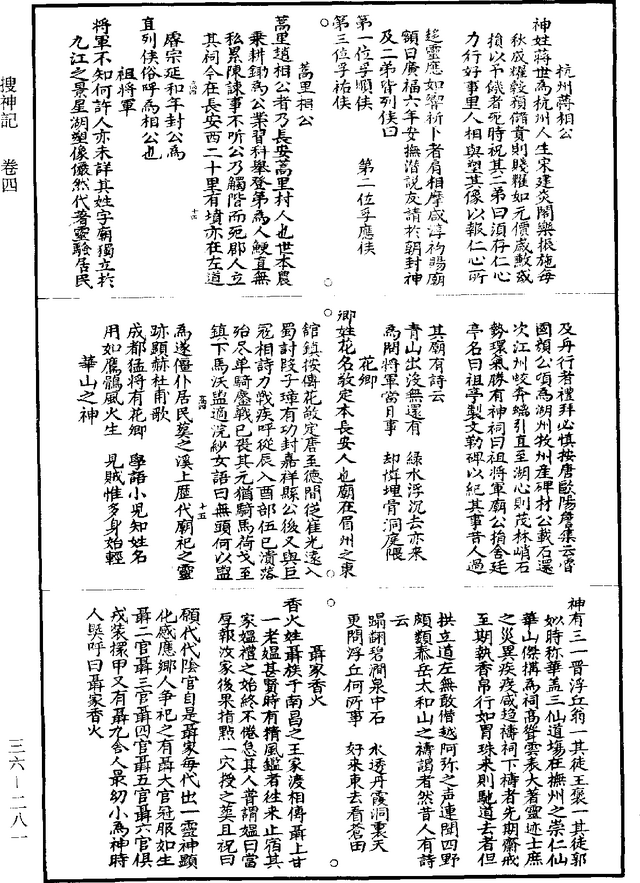 杭州蔣相公
神姓蔣世為杭州人生宋建炎間樂振施每
秋成糴穀預儲貴則賤糶如元價歲歉或
捐以予饑者死時祝其二弟曰須存仁心
力行好事里人相與塑其像以報仁心所
起靈應如響祈卜者肩相摩咸淳初賜廟
額曰廣福六年安撫潛說友請於朝封神
及二弟皆列侯曰
第一位孚順侯 第二位孚應侯
第三位孚祐侯
蒿里相公
蒿里趙相公者乃長安蒿里村人也世本農
乘耕鋤為公業習科舉登第為人鯁直無
私累陳諫事不听公乃觸階而死郡人立
其祠今在長安西二十里有墳亦在左道
唐宗延和年封公為
直列侯俗呼為相公也
祖將軍
將軍不知何許人亦未詳其姓字廟獨立於
九江之景星湖塑像儼然代著靈驗居民
及丹行者禮拜必慎按唐歐陽詹集云當
國顏公頃為湖州牧州產碑材公載石還
次江州峽奔端引直至湖心則茂林峭石
勢環氣勝有神祠曰祖將軍廟公捐舍廷
亭名曰祖亭製文勒碑以紀其事昔人過
其廟有詩云
青山出沒無還有 綠水浮沉去亦來
為問將軍當日事 却憐埋骨洞庭隈
花卿
卿姓花名敬定本長安人也廟在眉州之東
舘鎮按傳花敬定唐至德間從崔光遠入
蜀討段子璋有功封嘉祥縣公後又與巨
冦相詩力戰疾呼從辰入酉部伍已潰落
殆尽单騎鏖戰已喪其元猶騎馬荷戈至
鎮下馬沃盥適浣紗女語曰無頭何以盥
為遂僵仆居民葬之溪上歷代廟祀之靈
跡顯赫杜甫歌
成都猛將有花卿 學語小兒知姓名
用如鷹鶻風火生 見賊惟多身始輕
華山之神
神有三一晉浮丘翁一其徒王褒一其徒郭
姒時称華盖三仙道場在撫州之崇仁仙
華山傑構為祠高聳雲表大著靈迹士庶
之災異疾疫咸趋禱祠下禱者先期齋戒
至期執香帛行如冒珠来則馳道去者但
拱立道左無敢僭越阿弥之声連閧四野
頗類泰岳太和山之禱謁者然昔人有詩
云
蹋翻碧澗泉中石 水透丹霞洞裏天
更問浮丘何所事 好来東去看蒼田
聶家香火
香火姓聶族于南昌之王家渡相傳聶上世
一老媪甚賢時有精風鑑者往来止宿其
家媪禮之始終不倦怠其人普謂媪曰當
厚報汝家後果指點一穴授之葬且祝曰
願代代陰官自是聶家每代出一靈神顯
化感應鄉人争祀之有聶大官冠服如生
聶二官聶三官聶四官聶五官聶六官俱
戎装擐甲又有聶九舍人最幼小為神時
人㸔呼曰聶家香火
搜神記 卷四
三六－二八一